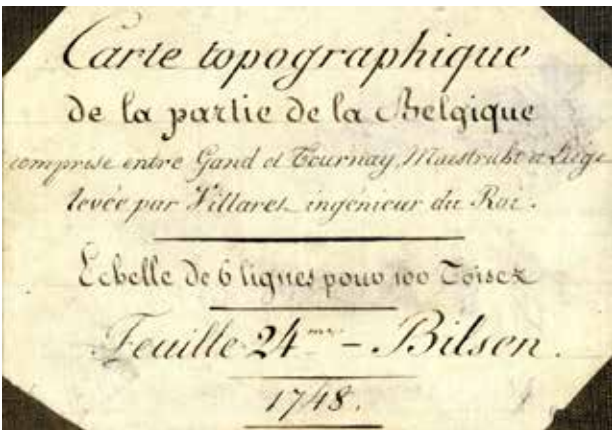 Carte topographique
de la partie de la Belgique
comprise entre Gand et Tournay, Maestricht et Liége
levée par Villaret ingénieur du Roi.
Echelle de 6 lignes pour 100 Toises
Feuille 24me – Bilsen.
1748.